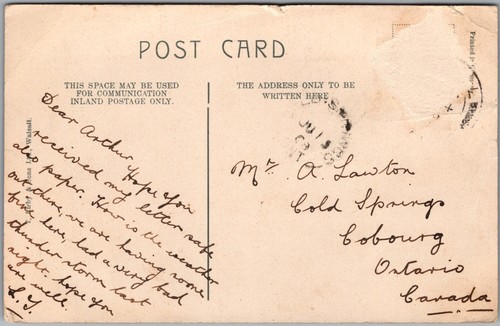 POST CARD
THIS SPACE MAY BE USED
FOR COMMUNICATION
INLAND POSTAGE ONLY.
THE ADDRESS ONLY TO BE
WRITTEN HERE
Dear Arthur Hope you
received my letter safe
also paper. How is the weather
out then, we are having some
here, had a very bad
thunder storm last
night, hope you
are well.
L. Y.
Mr. A. Lawton
Cold Springs
Cobourg
Ontario
Canada
Printed
& Sons Ltd., Walsall.